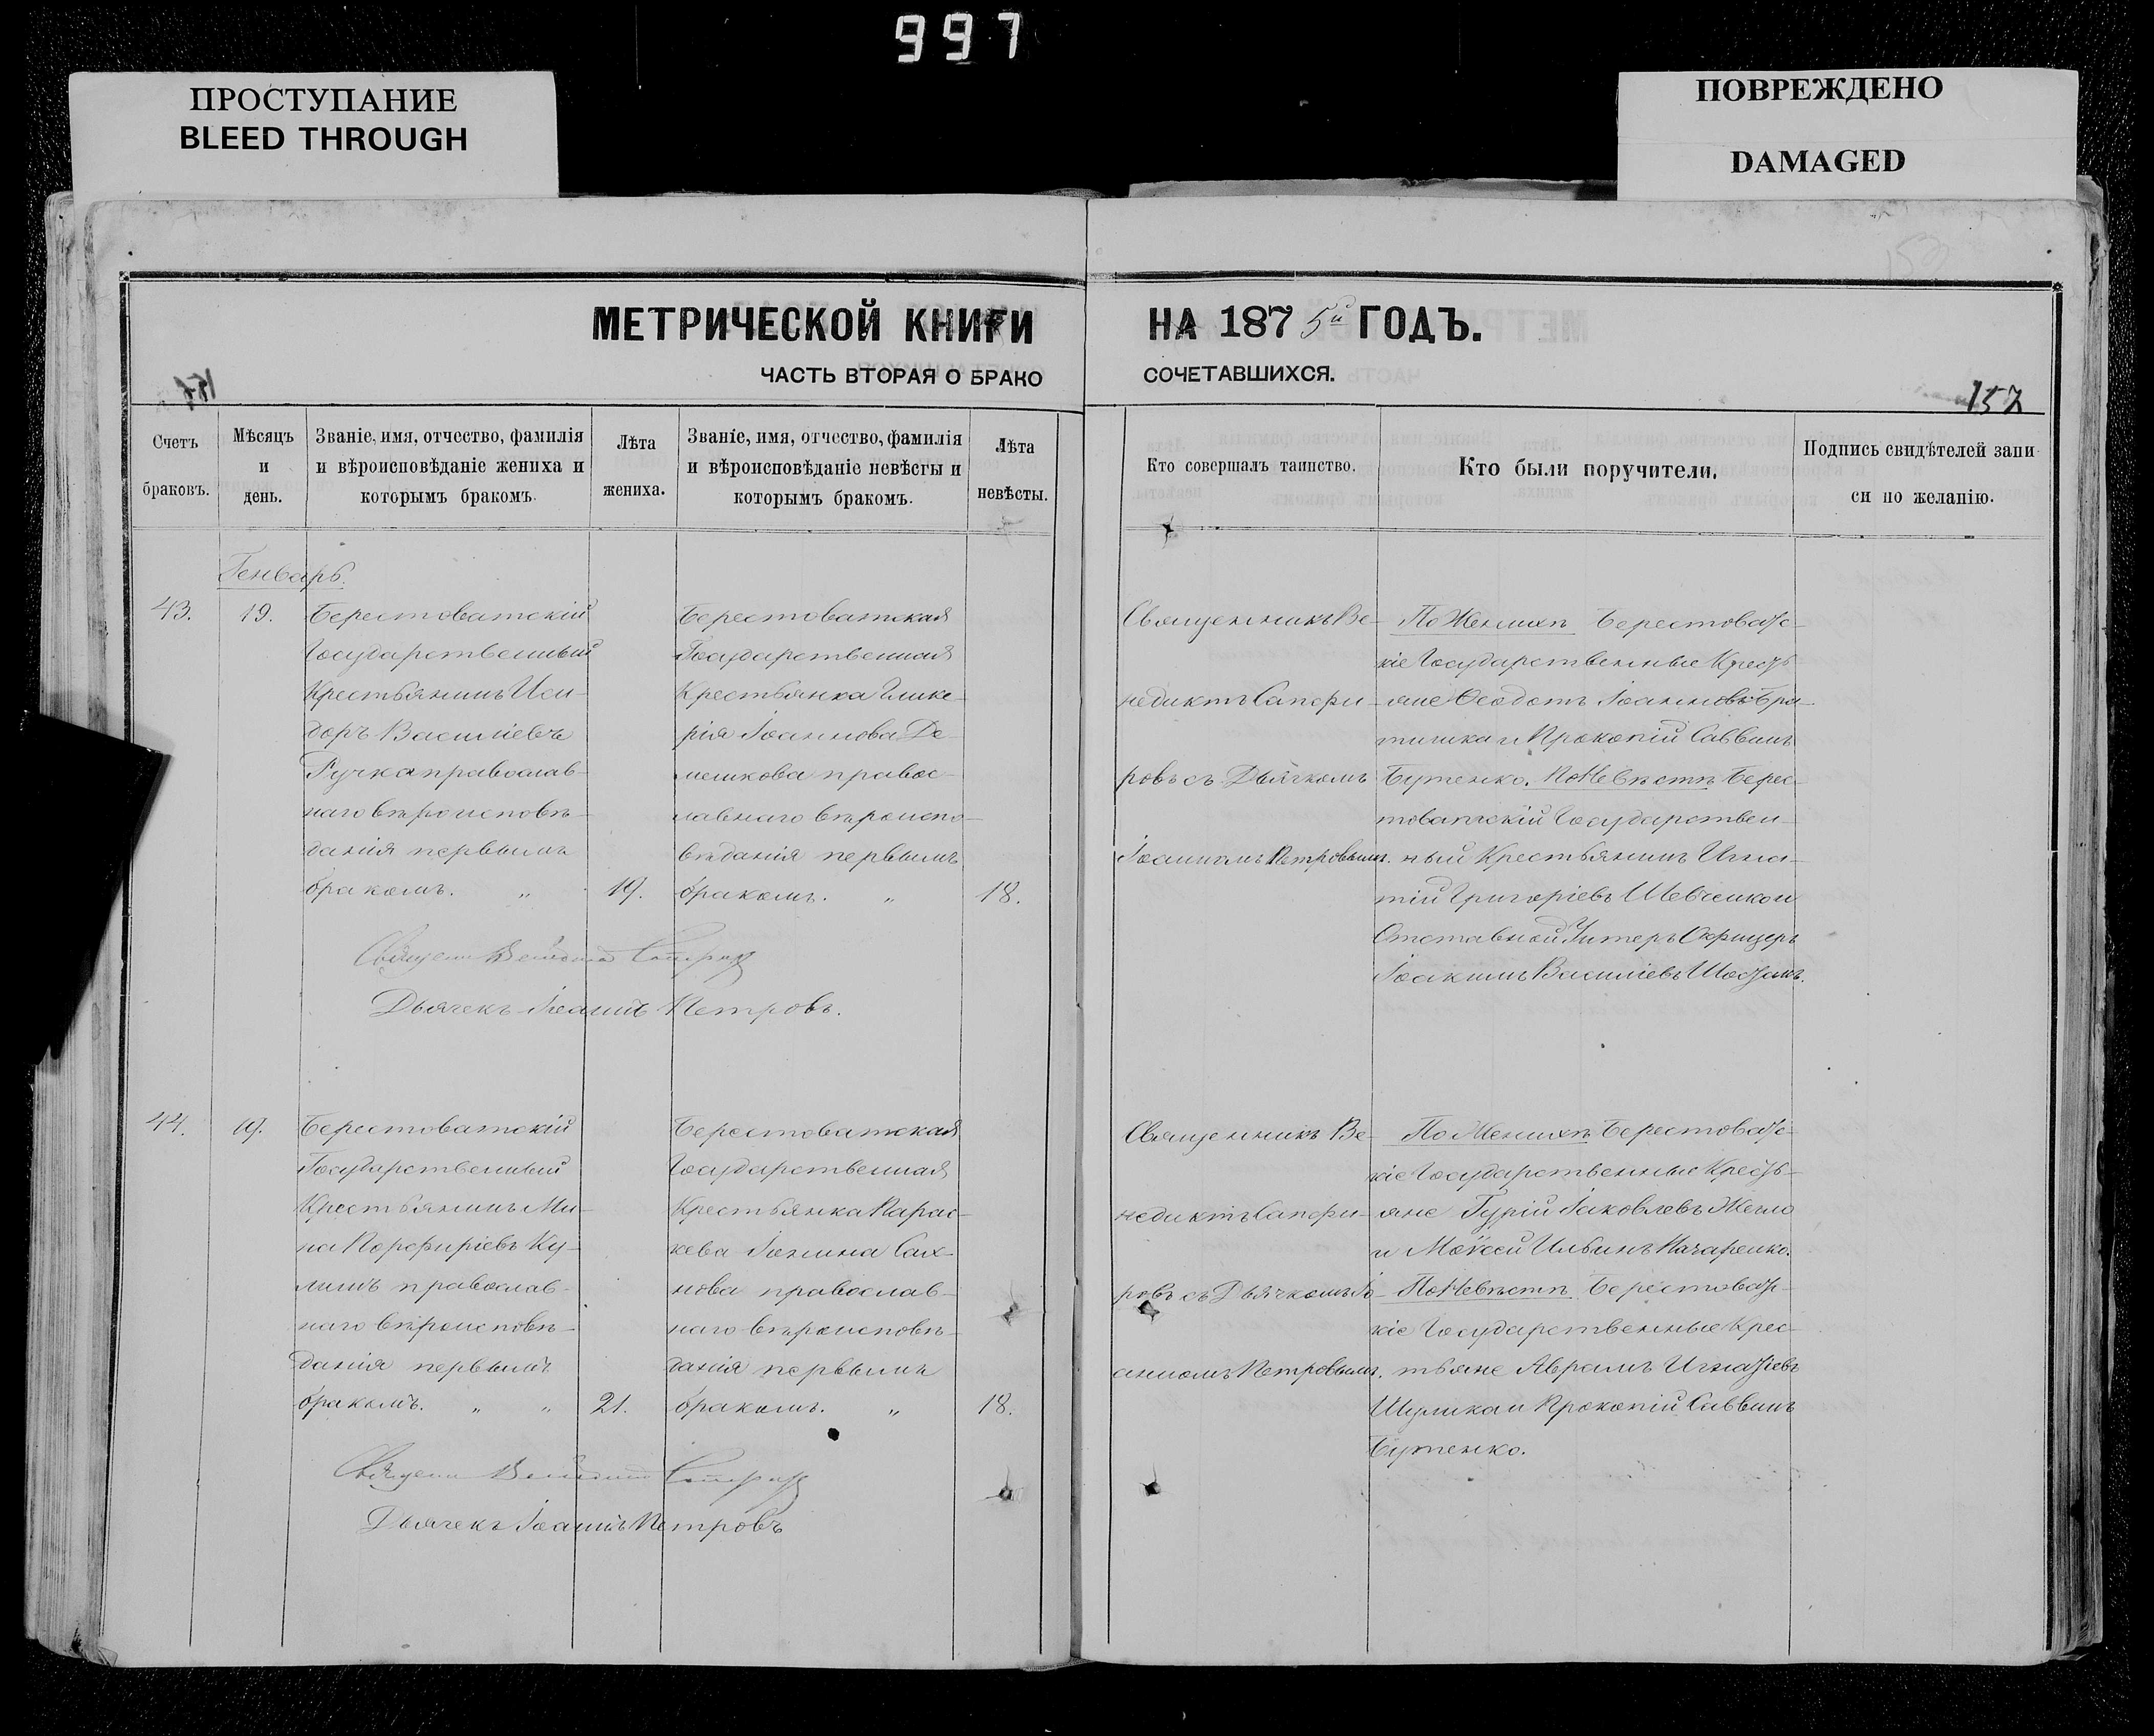 997
ПРОСТУПАНИЕ
BLEED THROUGH
ПОВРЕЖДЕНО
DAMAGED
МЕТРИЧЕСКОЙ КНИГИ
НА 1875й ГОДЪ.
ЧАСТЬ ВТОРАЯ О БРАКО
СОЧЕТАВШИХСЯ.
157
Счетъ
браковъ.
Мѣсяцъ
и
день.
Званіе, имя, отчество, фамилія
и вѣроисповѣданіе жениха и
которымъ бракомъ.
Лѣта
жениха.
Званіе, имя, отчество, фамилія
и вѣроисповѣданіе невѣсты и
которымъ бракомъ.
Лѣта
невѣсты.
Кто совершалъ таинство.
Кто были поручители.
Подпись свидѣтелей запи-
си по желанію.
Генварь.
43.
19.
Берестоватскій
Государственный
Крестьянинъ Иси-
доръ Василіевъ
Гучка православ-
наго вѣроисповѣ-
данія первымъ
бракомъ. „
19.
Берестоватская
Государственная
Крестьянка Глике-
рія Іоаннова Де-
мешкова правос-
лавнаго вѣроиспо-
вѣданія первымъ
бракомъ. „
18.
Священникъ Ве-
недиктъ Сапфи-
ровъ съ Дьячкомъ
Іоанномъ Петровымъ.
По Женихѣ Берестоватс-
кіе Государственные Кресть-
яне Ѳеодотъ Іоанновъ Бра-
тишка и Прокопій Саввинъ
Бутенко. По Невѣстѣ Берес-
товатскій Государствен-
ный Крестьянинъ Игна-
тій Григоріевъ Шевченко и
Отставной Унтеръ Офицеръ
Іоакимъ Василіевъ
Священ Венедиктъ Сапфир
Дьячекъ Іоаннъ Петровъ.
44.
19.
Берестоватскій
Государственный
Крестьянинъ Ми-
на Порфиріевъ Ку-
лишъ православ-
наго вѣроисповѣ-
данія первымъ
бракомъ. „ „
21.
Берестоватская
Государственная
Крестьянка Парас-
кева Іонина Сах-
нова православ-
наго вѣроисповѣ-
данія первымъ
бракомъ. „
18.
Священникъ Ве-
недиктъ Сапфи-
ровъ съ Дьячкомъ Іо-
анномъ Петровымъ.
По Женихѣ Берестоватс-
кіе Государственные Кресть-
яне Гурій Іаковлевъ Жегло
и Моѵсей Ильинъ Назаренко.
По Невѣстѣ Берестоватс-
кіе Государственные Крес-
тьяне Аврамъ Игнатіевъ
Шулика и Прокопій Саввинъ
Бутенко.
Священ Венедиктъ Сапфир
Дьячекъ Іоаннъ Петровъ